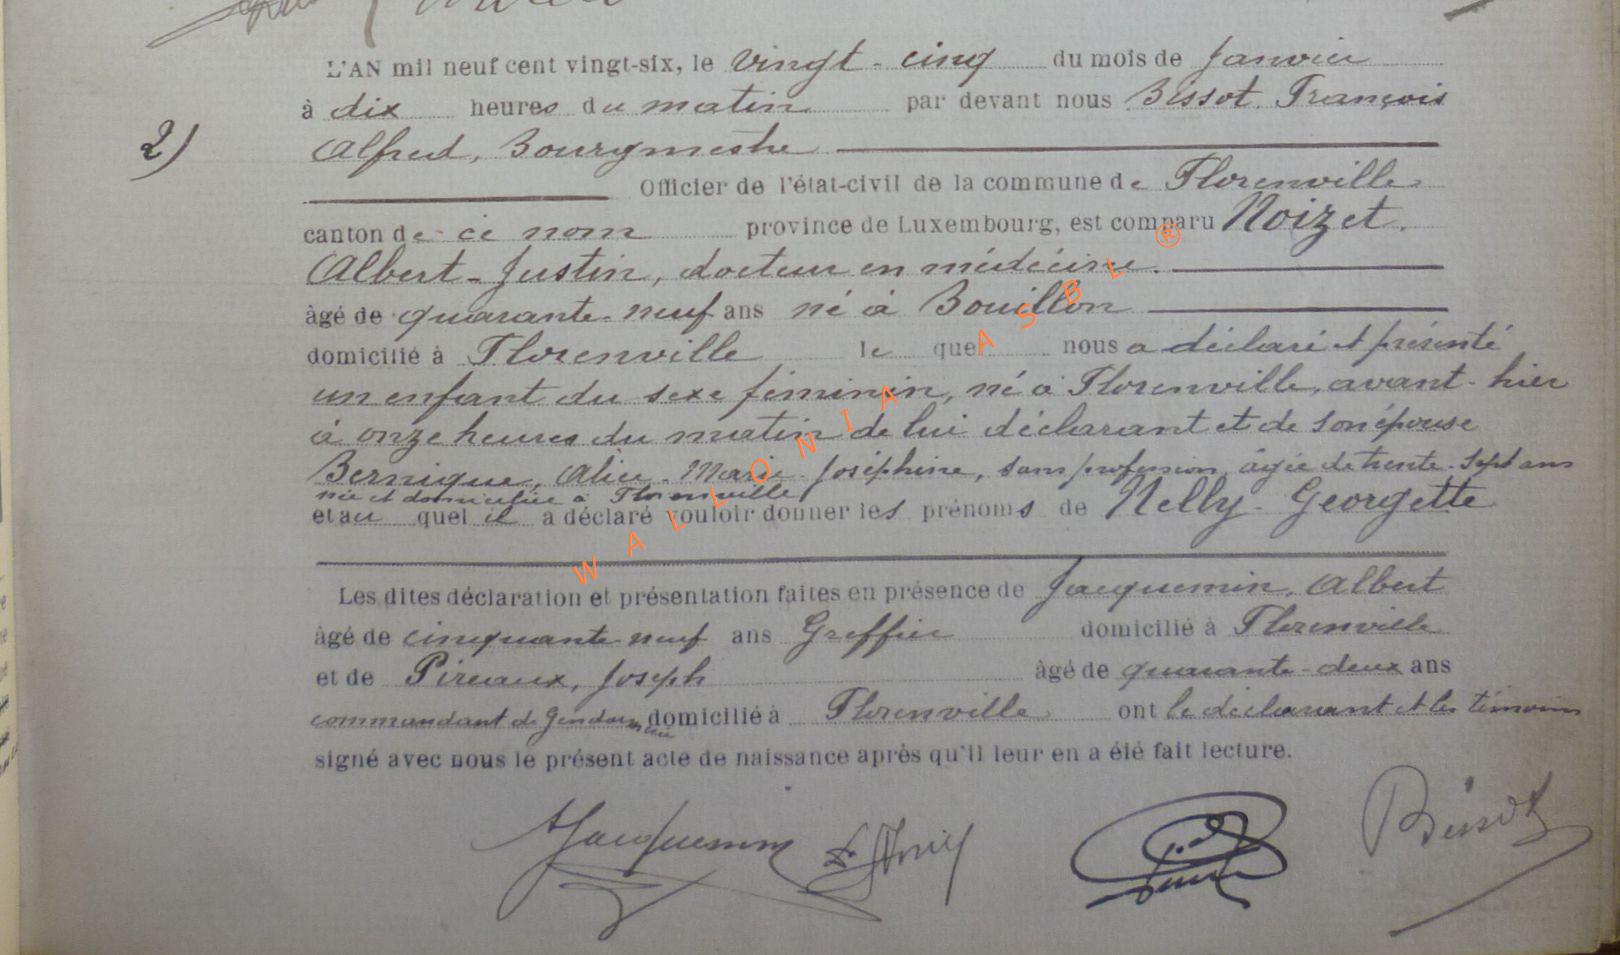 L'AN mil neuf cent vingt-six, le vingt-cinq du mois de Janvier
à dix heures du matin par devant nous Bissot, François
2) Alfred, Bourgmestre
Officier de l'état-civil de la commune de Florenville
canton de ce nom province de Luxembourg, est comparu Noizet.
Albert-Justin, docteur en médécine.
âgé de quarante-neuf ans né à Bouillon
domicilié à Florenville le quel nous a déclaré et présenté
un enfant du sexe féminin, né à Florenville, avant-hier
à onze heures du matin de lui déclarant et de son épouse
Bernique, Alice-Marie-Joséphine, sans profession, âgée de trente-sept ans
née et domiciliée à Florenville
et au quel il a déclaré vouloir donner les prénoms de Nelly-Georgette
Les dites déclaration et présentation faites en présence de Jacquemin, Albert
âgé de cinquante-neuf ans Greffier domicilié à Florenville
et de Pireaux, Joseph âgé de quarante-deux ans
commandant de Gendarmerie domicilié à Florenville ont le déclarant et les témoins
signé avec nous le présent acte de naissance après qu'il leur en a été fait lecture.
AJacquemin Bissot
WALLONIA ASBL ®